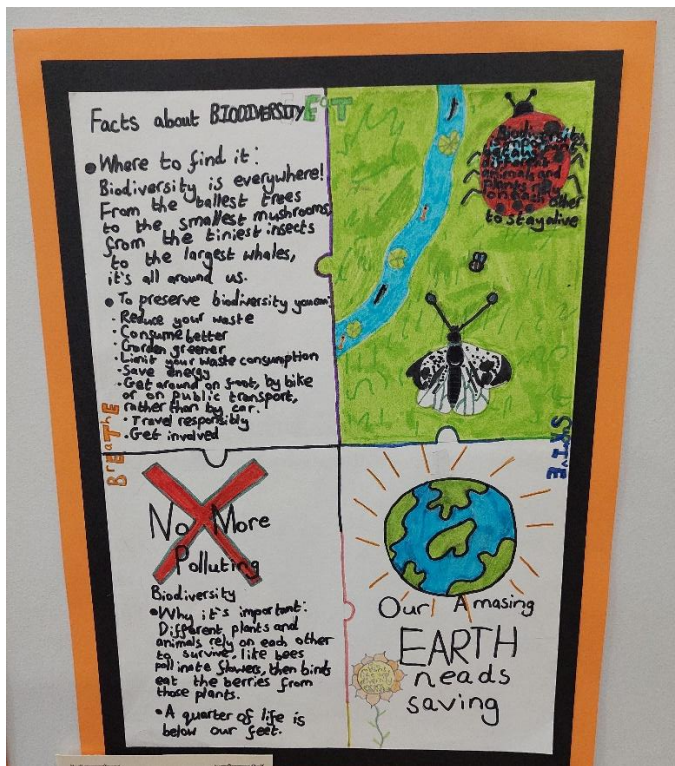 Facts about BIODIVERSITY
EaT
Where to find it:
Biodiversity is everywhere!
From the tallest trees
to the smallest mushrooms,
from the tiniest insects
to the largest whales,
it's all around us.
To preserve biodiversity you can:
Reduce your waste
Consume better
Garden greener
Limit your waste consumption
Save energy
Get around on foot, by bike
or on public transport,
rather than by car.
Travel responsibly
Get involved
Biodiversity
is important
animals and
plants rely
on each other
to stay alive
BreaThE
No More
Polluting
Biodiversity
Why it's important:
Different, plants and
animals rely on each other
to survive, like bees
pollinate flowers, then birds
eat the berries from
those plants.
A quarter of life is
below our feet.
Our Amasing
EARTH
neads
saving